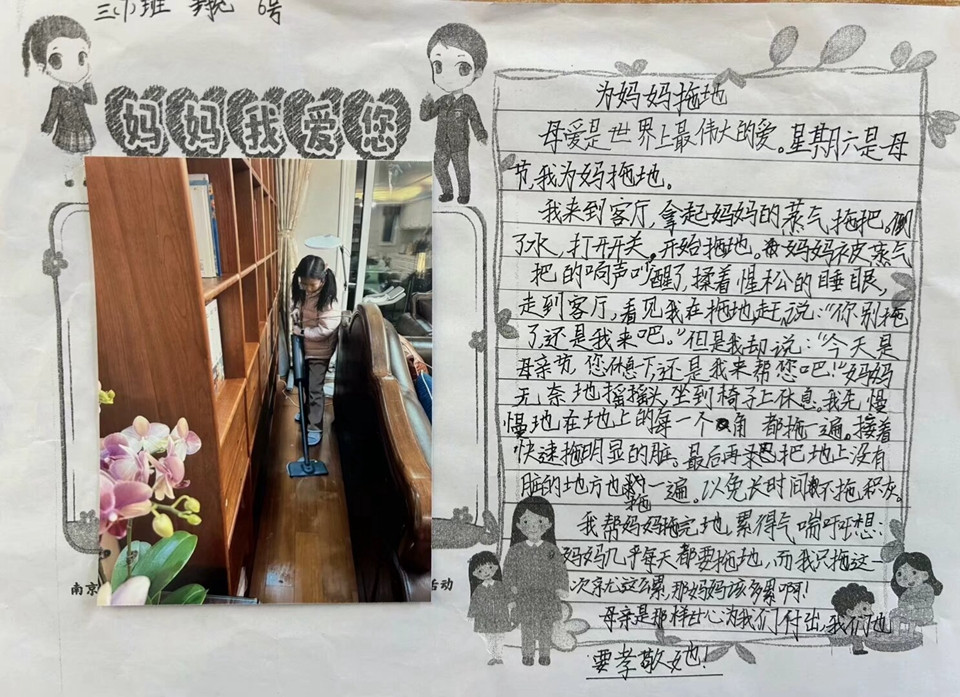 三(1)班 6号
妈妈我爱您
南京
活动
为妈妈拖地
母爱是世界上最伟大的爱。星期六是母
节,我为妈拖地。
我来到客厅,拿起妈妈的蒸气拖把。倒
了水,打开开关,开始拖地。妈妈被蒸气
把的响声叫醒了,揉着惺松的睡眼,
走到客厅,看见我在拖地,赶说:“你别拖
了还是我来吧。”但是我却说:“今天是
母亲节,您休息下还是我来帮您吧!”妈妈
无奈地摇摇头坐到椅子上休息。我先慢
慢地在地上的每一个角都拖一遍。接着
快速拖明显的脏。最后再把地上没有
脏的地方也拖一遍。以免长时间不拖,积灰。
我帮妈妈拖完地,累得气喘吁吁想:
妈妈几乎每天都要拖地,而我只拖这一
次就这么累,那妈妈该多累啊!
母亲是那样甘心为我们付出,我们也
要孝敬她!